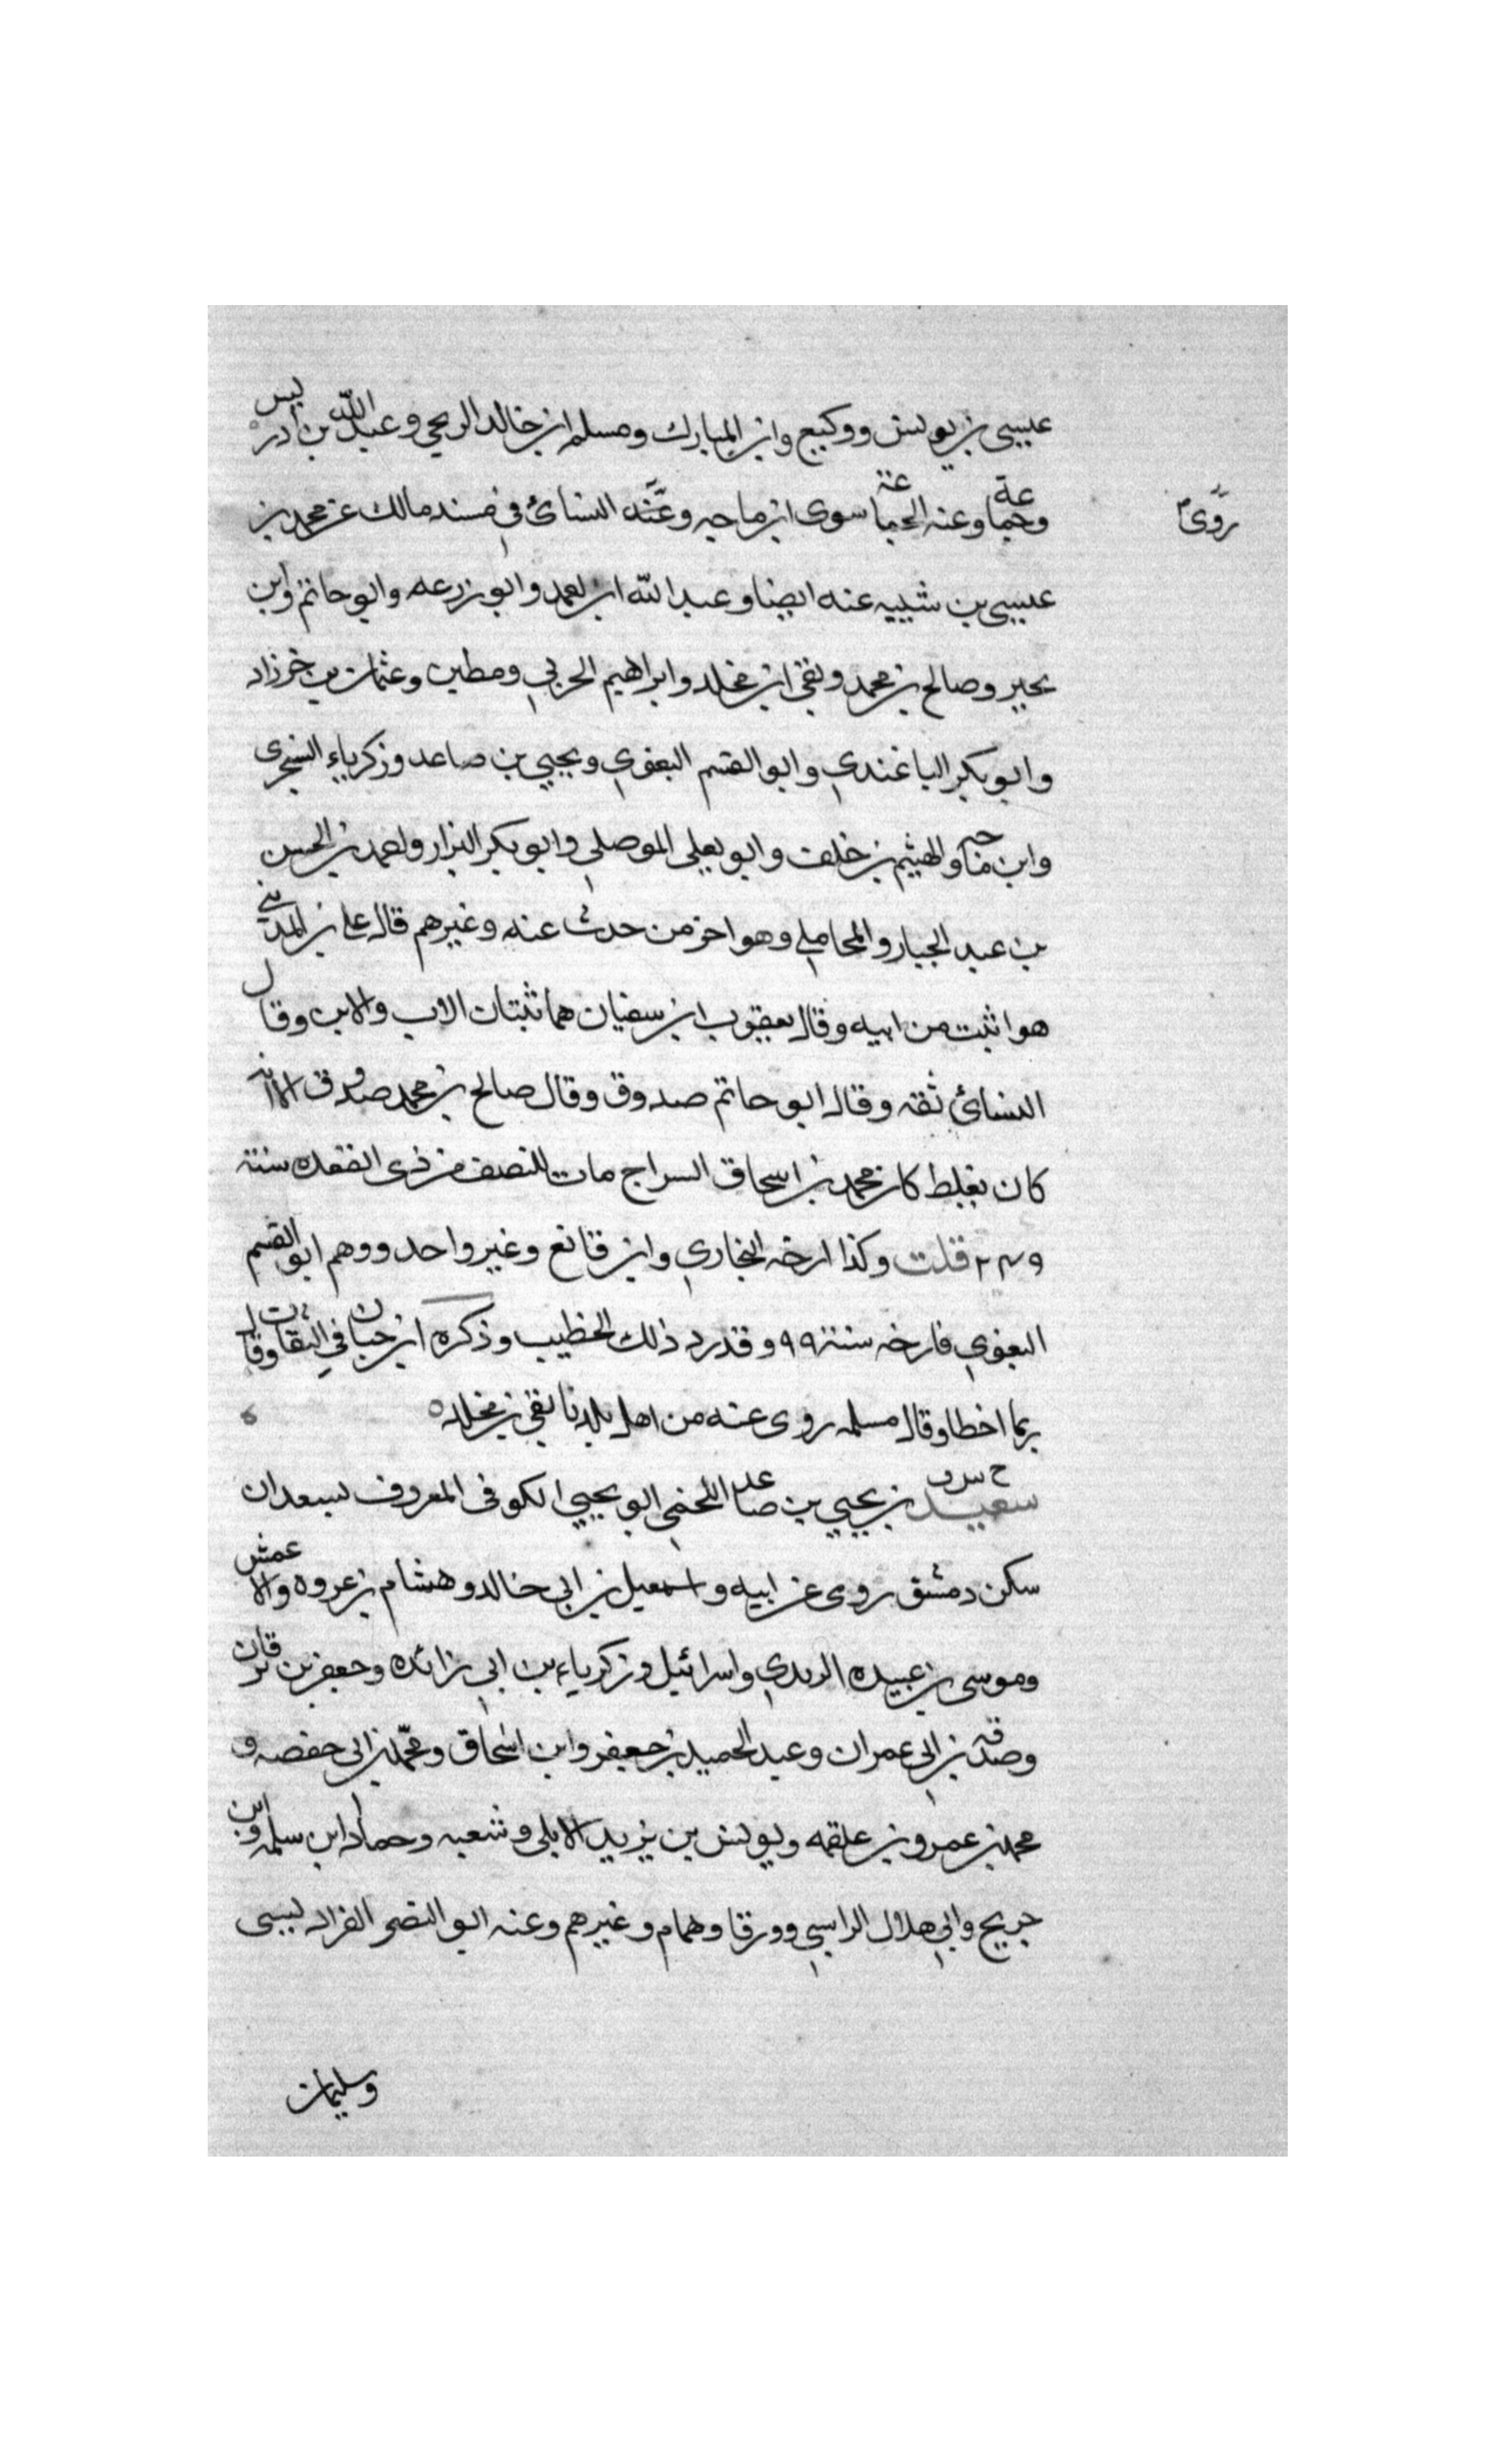 عيسى بن يونس ووكيع وابن المبارك ومسلم ابن خالد الزنجي وعبد الله بن ادريس
وجماعة وعنه الجماعة سوى ابن ماجه وعنه النسائ في مسند مالك عن محمد بن
روى
عيسى بن شيبه عنه ايضا وعبد الله ابن احمد وابو زرعه وابو حاتم وابن
بجير وصالح بن محمد وبقي ابن مخلد وابراهيم الحربي ومطين وعثمان بن خرزاد
وابو بكر الباغندي وابو القسم البغوي ويحيي بن صاعد وزكرياء السجزى
وابن ماجه والهيثم بن خلف وابو يعلى الموصلي وابو بكر البزار واحمد بن الحسن
بن عبد الجبار والمحاملي وهو اخر من حدث عنه وغيرهم قال علي بن المديني
هو اثبت من ابيه وقال يعقوب ابن سفيان هما ثبتان الاب والابن وقال
النسائ ثقه وقال ابو حاتم صدوق وقال صالح بن محمد صدوق الا انه
كان يغلط كان محمد بن اسحاق السراج مات للنصف من ذى القعده سنة
٢٤٩ قلت وكذا ارخه البخاري وابن قانع وغير واحد ووهم ابو القسم
البغوي فارخه سنة ٩٩ وقد رد ذلك الخطيب وذكره ابن حبان في الثقات وقال
ربما اخطا وقال مسلمه روى عنه من اهل بلدنا بقي بن مخلد ٥
سعيد بن يحيي بن صاعد اللخمي ابو يحيي الكوفى المعروف بسعدان
سكن دمشق روى عن ابيه واسمعيل بن ابي خالد وهشام بن عروه والاعمش
وموسى بن عبيده الربدي واسرائيل وزكرياء بن ابي زائده وجعفر بن برقان
وصدقه بن ابي عمران وعبد الحميد بن جعفر وابن اسحاق ومحمد بن ابى حفصه و
محمد بن عمرو بن علقمه ويونس بن يزيد الايلي وشعبه وحماد ابن سلمه وابن
جريج وابي هلال الراسبي وورقا وهمام وغيرهم وعنه ابو النضر الفراديسى
وسليمان